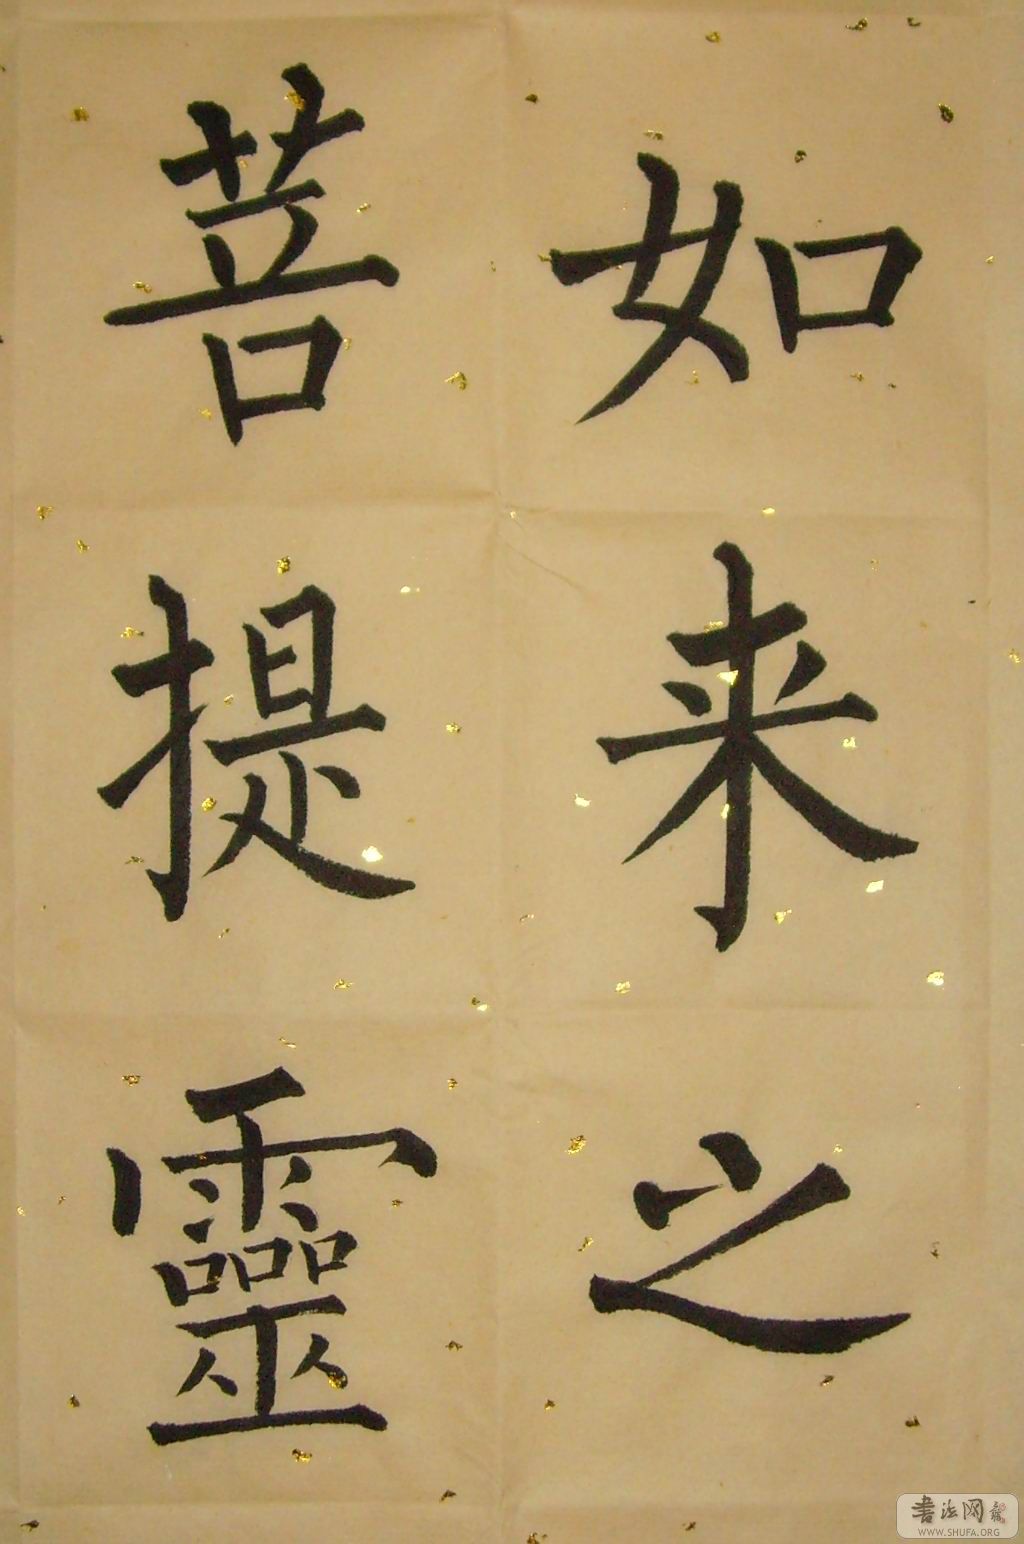 如来之
菩提靈
書法网
WWW.SHUFA.ORG